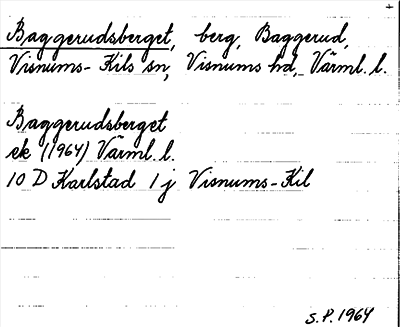 Baggerudsberget, berg, Baggerud,
Visnums-Kils sn, Visnums hd, Värml. l.
Baggerudsberget
ek (1964) Värml. l.
10 D Karlstad 1 j Visnums-Kil
S.P. 1964